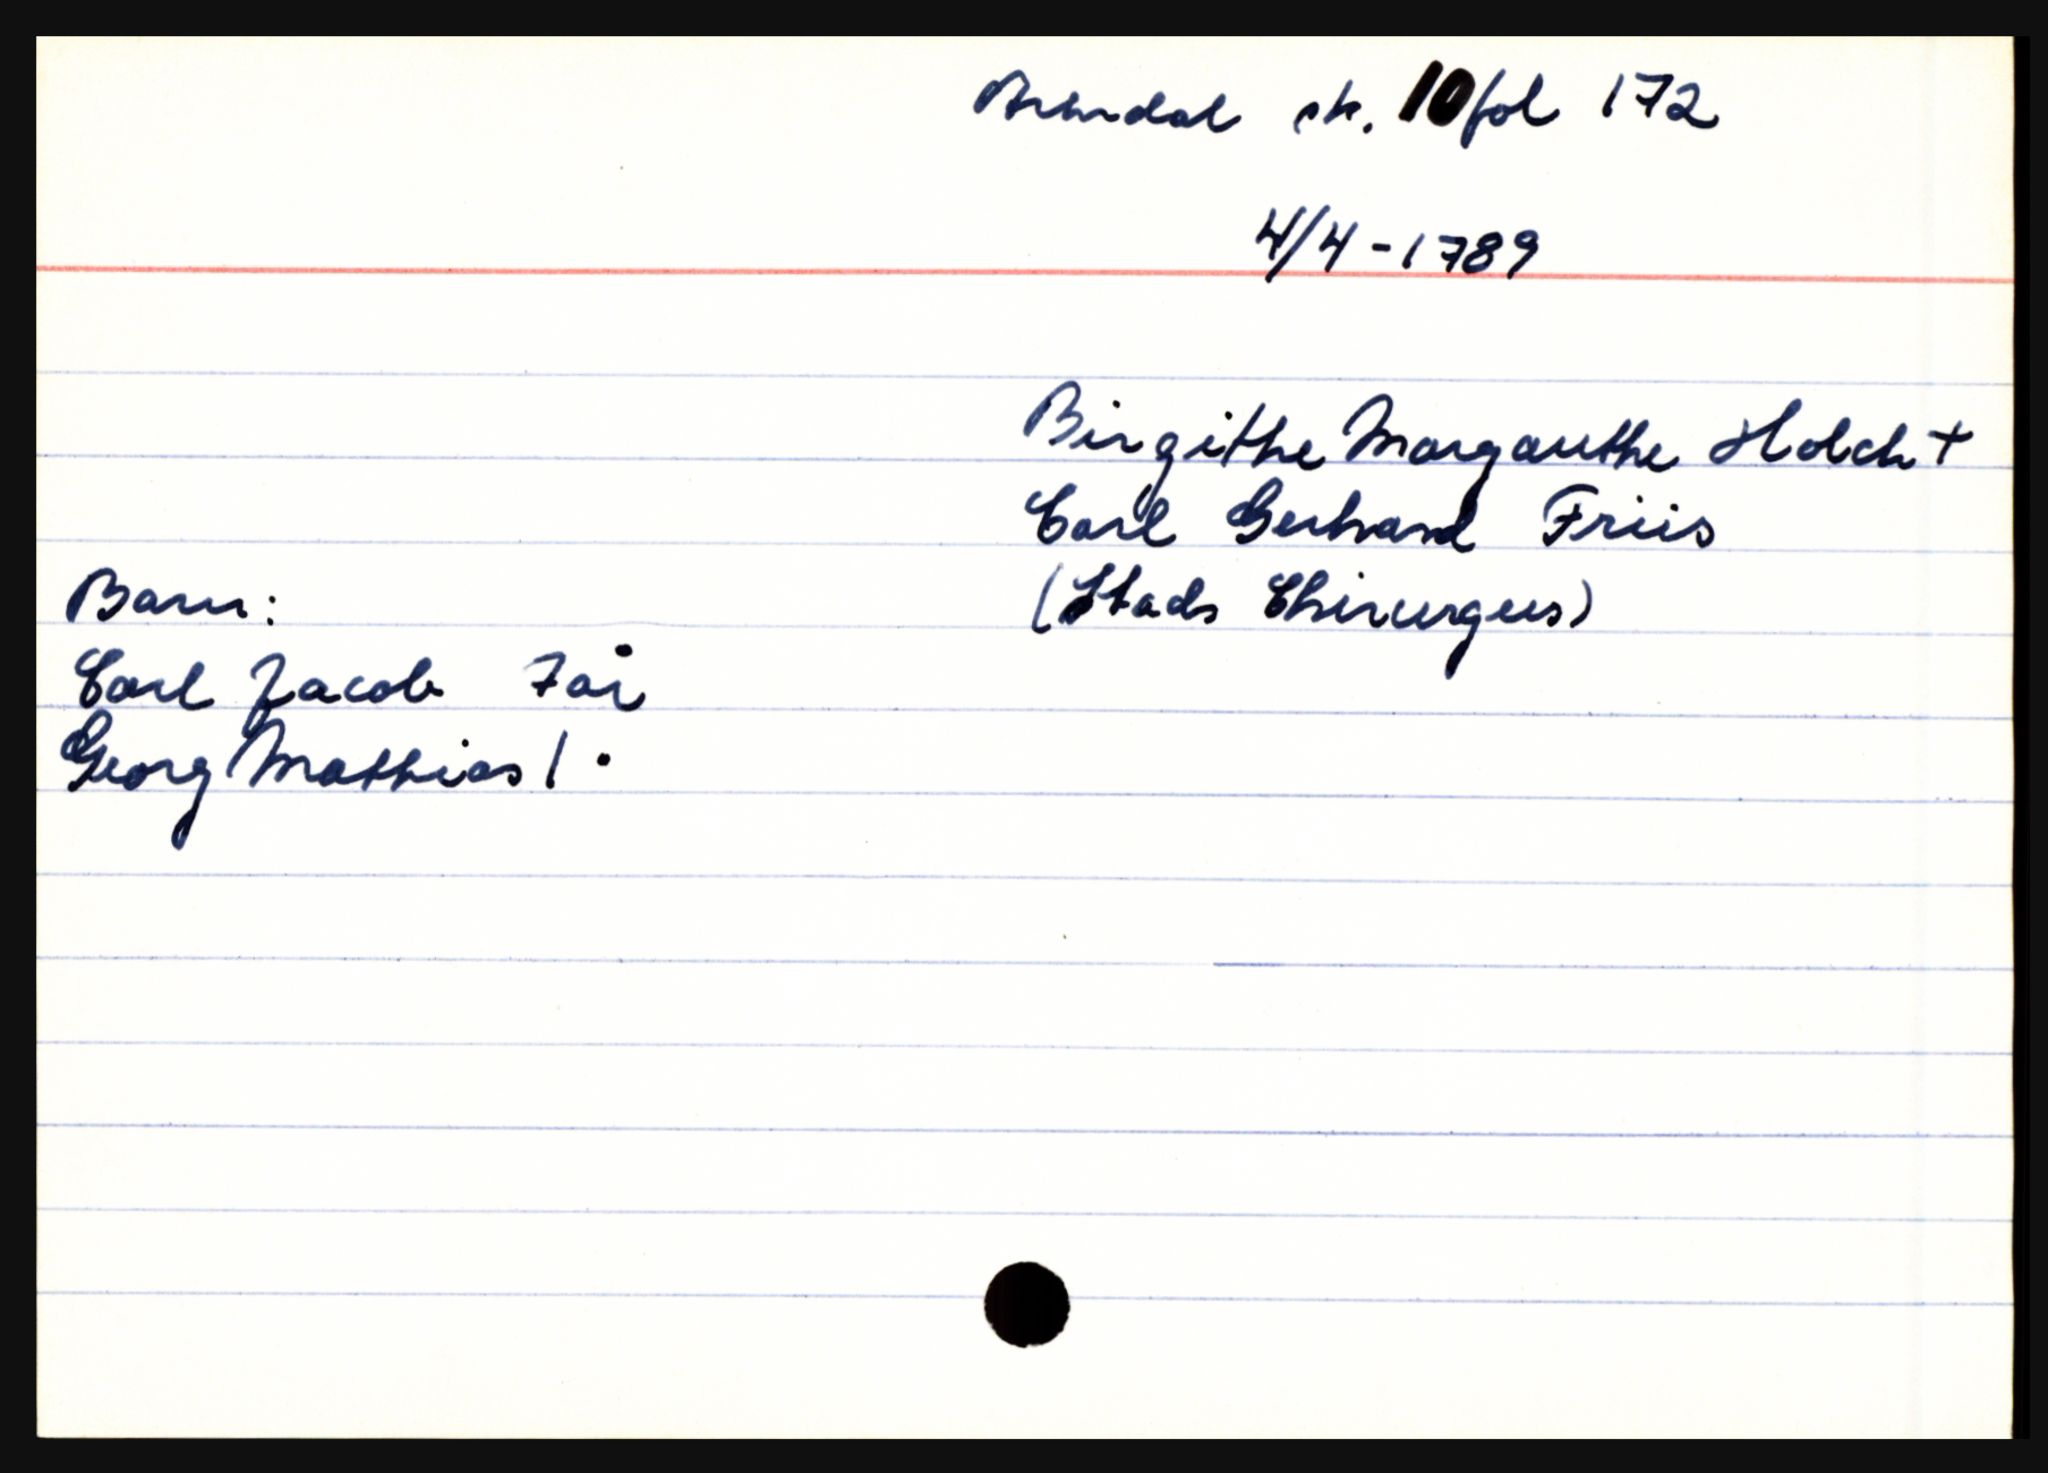 Arendal sk. 10 fol 172
4/4 - 1789
Birgithe Margarethe Holch +
Carl Gerhard Friis
(Stads Chirurgus)
Barn:
Carl Jacob 7 år
Georg Mathias 1 .